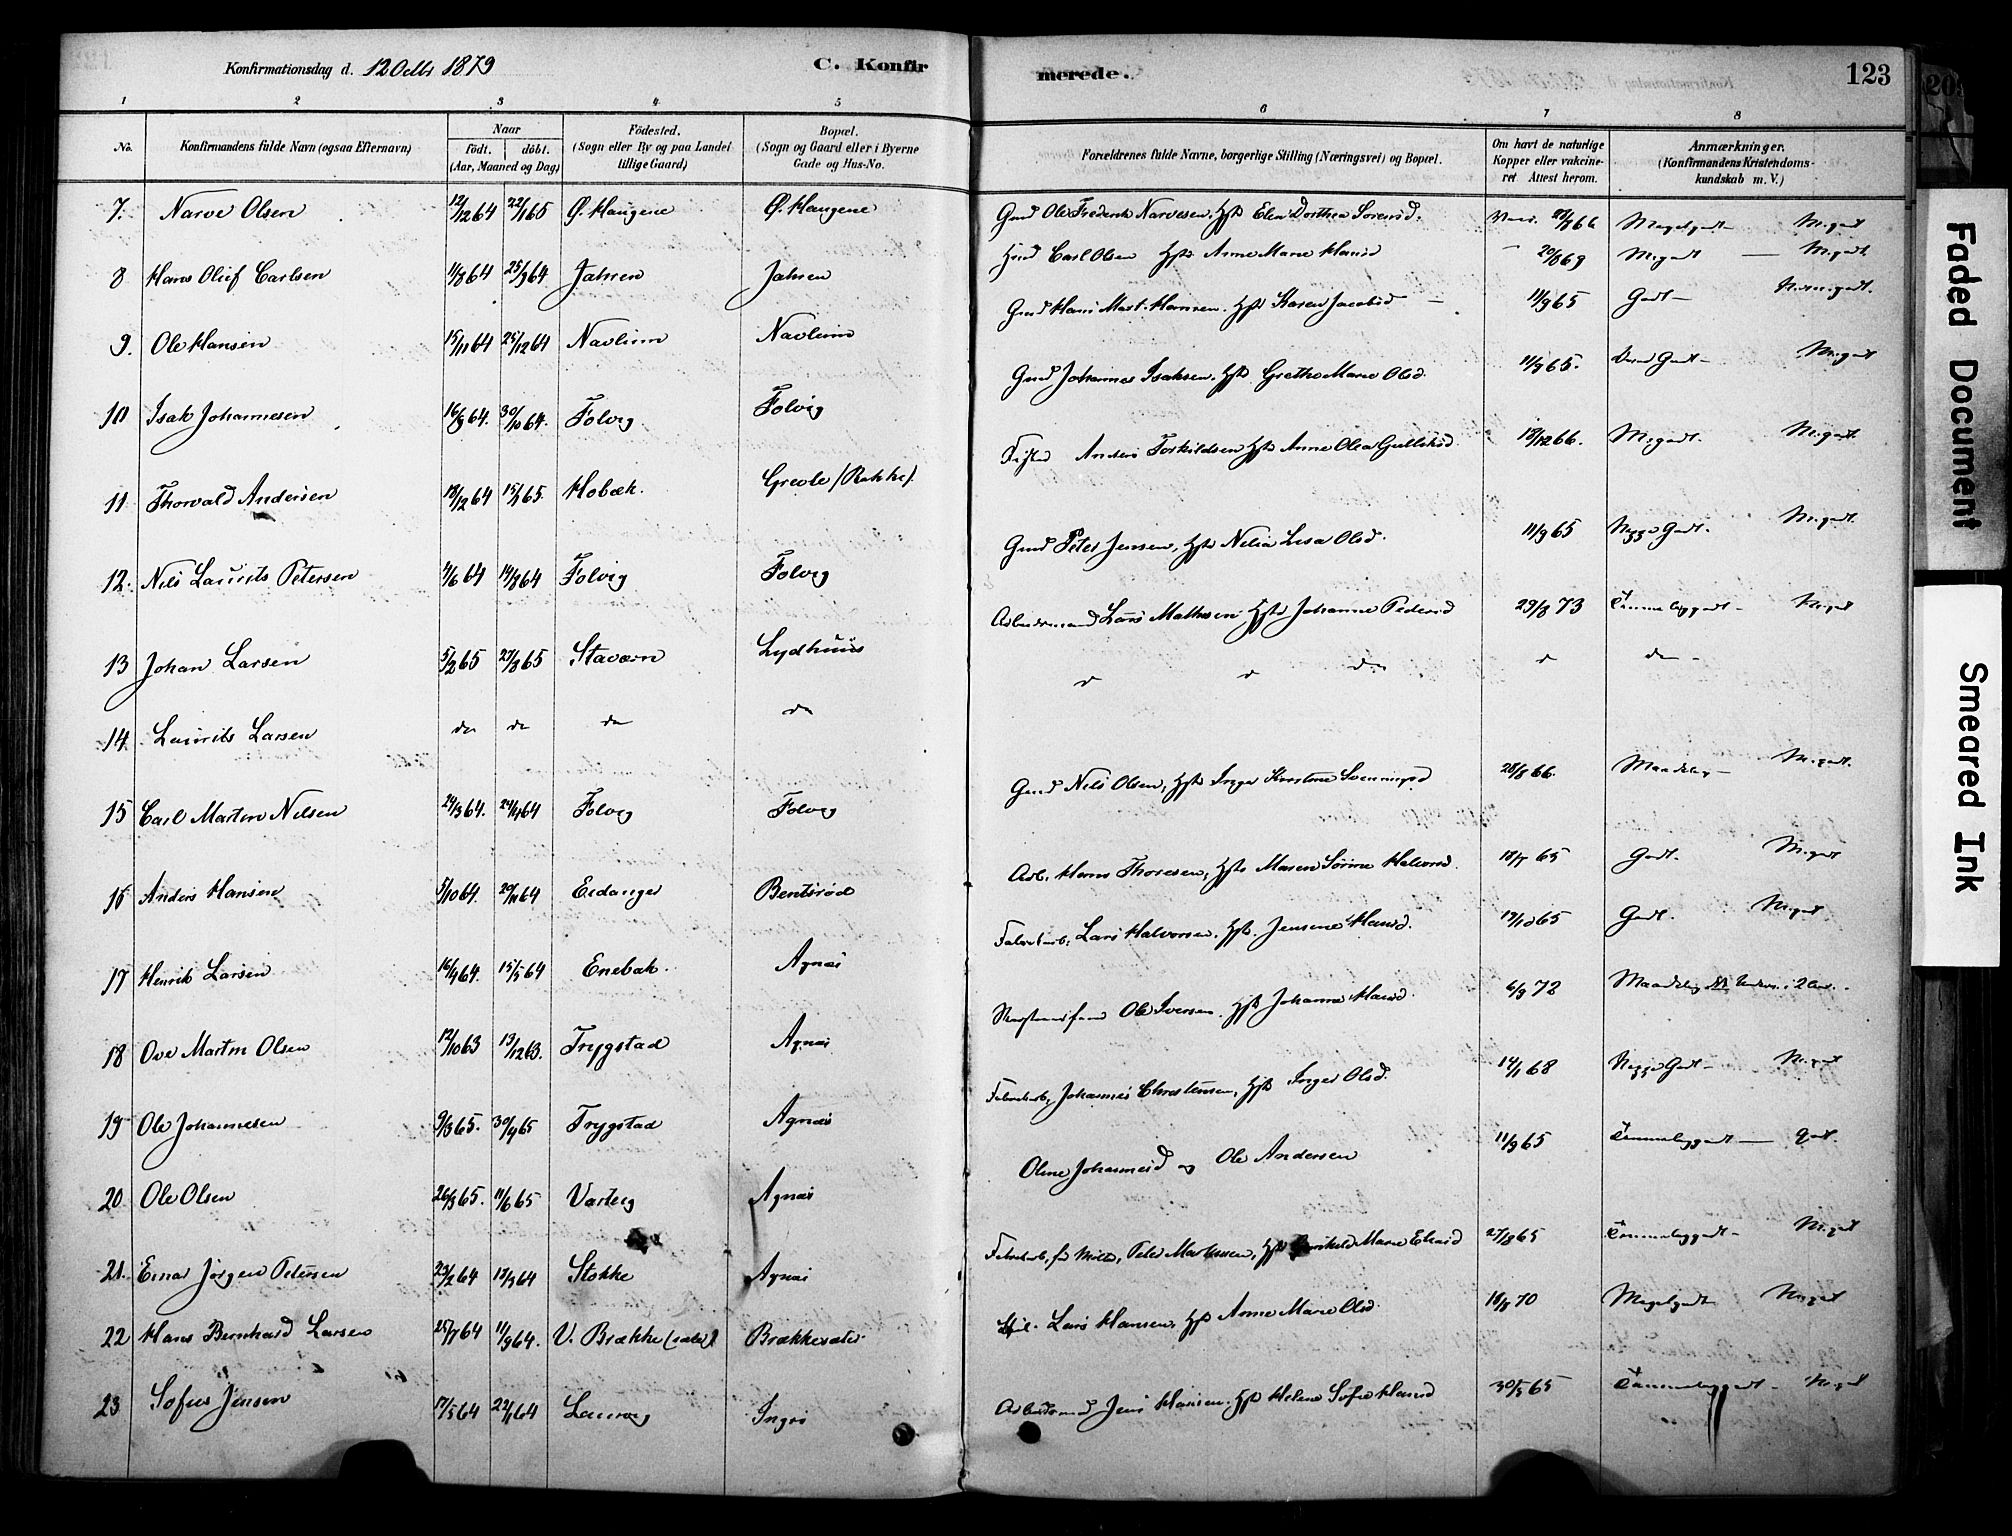 Konfirmationsdag d. 12 Octbr 1879 C. Konfirmerede. 123
1 2 3 4 5 6 7 8
No. Konfirmandens fulde Navn (ogsaa Efternavn) Naar födt. döbt. (Aar, Maaned og Dag) Födested. (Sogn eller By og paa Landet tillige Gaard) Bopæl. (Sogn og Gaard eller i Byerne Gade og Hus-No. Forældrenes fulde Navne, borgerlige Stilling (Næringsvei) og Bopæl. Om havt de naturlige Kopper eller vakcineret Attest herom. Anmærkninger. (Konfirmandens Kristendomskundskab m. V.)
7. Narve Olsen 12/12 64 22/1 65 Ø. Haugene Ø. Haugene Gmd Ole Frederik Narvesen, Hst Elen Dorthea Sørensd. Meget godt M. godt
8 Hans Oluf Carlsen 11/8 64 25/9 64 Jahren Jahren Carl Olsen Hst Anne Marie Hansd 20/8 69 M. godt M. godt
9. Ole Hansen 15/11 64 25/12 64 Navlum Navlum Gmd Hans Mart. Hansen, Hst Karen Jacobsd 11/9 65 Godt
10 Isak Johannesen 16/9 64. 30/10 64. Folvig Folvig Gmd Johannes Isaksen, Hst Grethe Marie Olsd. 11/9 65. Godt M. godt
11 Thorvald Andersen 18/12 64 15/1 65. Hobæk. Grevle (Rakke). Anders Torkildsen Hst Anne Olea Gulliksd. 18/12 66. M. godt. M. godt.
12. Nils Laurits Petersen 4/6 64 14/8 64 Folvig Folvig Gmd Peter Jensen, Hst Nilia Lisa Olsd. 11/9 65 Godt. M. godt.
13 Johan Larsen 5/2 65 27/8 65 Staværn Lydhuus Arbeidsmand Lars Mathisen Hst Johanne Pedersd 29/8 73 Temmelig godt M. godt
14 Laurits Larsen do do do do do do
15 Carl Martin Nilsen 29/3 64. 24/4 64 Folvig Folvig Gmd Nils Olsen, Hst Inger Kirstine Svenningsd 28/8 66. Maadelig M. godt.
16 Anders Hansen 5/10 64. 20/11 64 Eidanger Bentsrød Arb. Hans Thoresen, Hst Maren Sørine Halvorsd. 18/7 65 Godt. M. godt
17 Henrik Larsen 16/4 64. 15/5 64 Enebak. Agnæs Fabrikarb. Lars Halvorsen, Hst. Jensine Hansd. 19/10 65 Godt. M. godt
18 Ove Martin Olsen 12/10 63 13/12 63. Trygstad Agnæs Ole Iversen. Hst Johanne Hansd. 6/9 72 Maadelig
19 Ole Johannesen 9/3 65. 30/4 65 Trygstad Agnæs Fabrikarb. Johannes Christensen, Hst Inger Olsd. 14/1 68 Godt M. godt
20 Ole Olsen 26/3 65. 11/6 65 Varteig Agnæs Oline Johannesd og Ole Andersen 11/9 65 Temmelig godt godt.
21. Einar Jørgen Petersen 23/2 64 13/3 64 Stokke Agnæs Fabrikarb. Peter Marthisen, Hst Marie Eliasd 27/8 65 Temmelig godt M. godt
22 Hans Bernhard Larsen 25/7 64 11/9 64. V. Brække (sæter) Brækkesæter Lars Hansen, Hst Anne Marie Olsd. 18/8 70 Meget godt M. godt
23 Sofus Jensen 17/5 64 Laurvig Ingrs Arbeidsmd Jens Hansen, Hst Helene Sofie Hansd 30/5 65 Temmelig godt M. godt
Faded Document
Smeared Ink